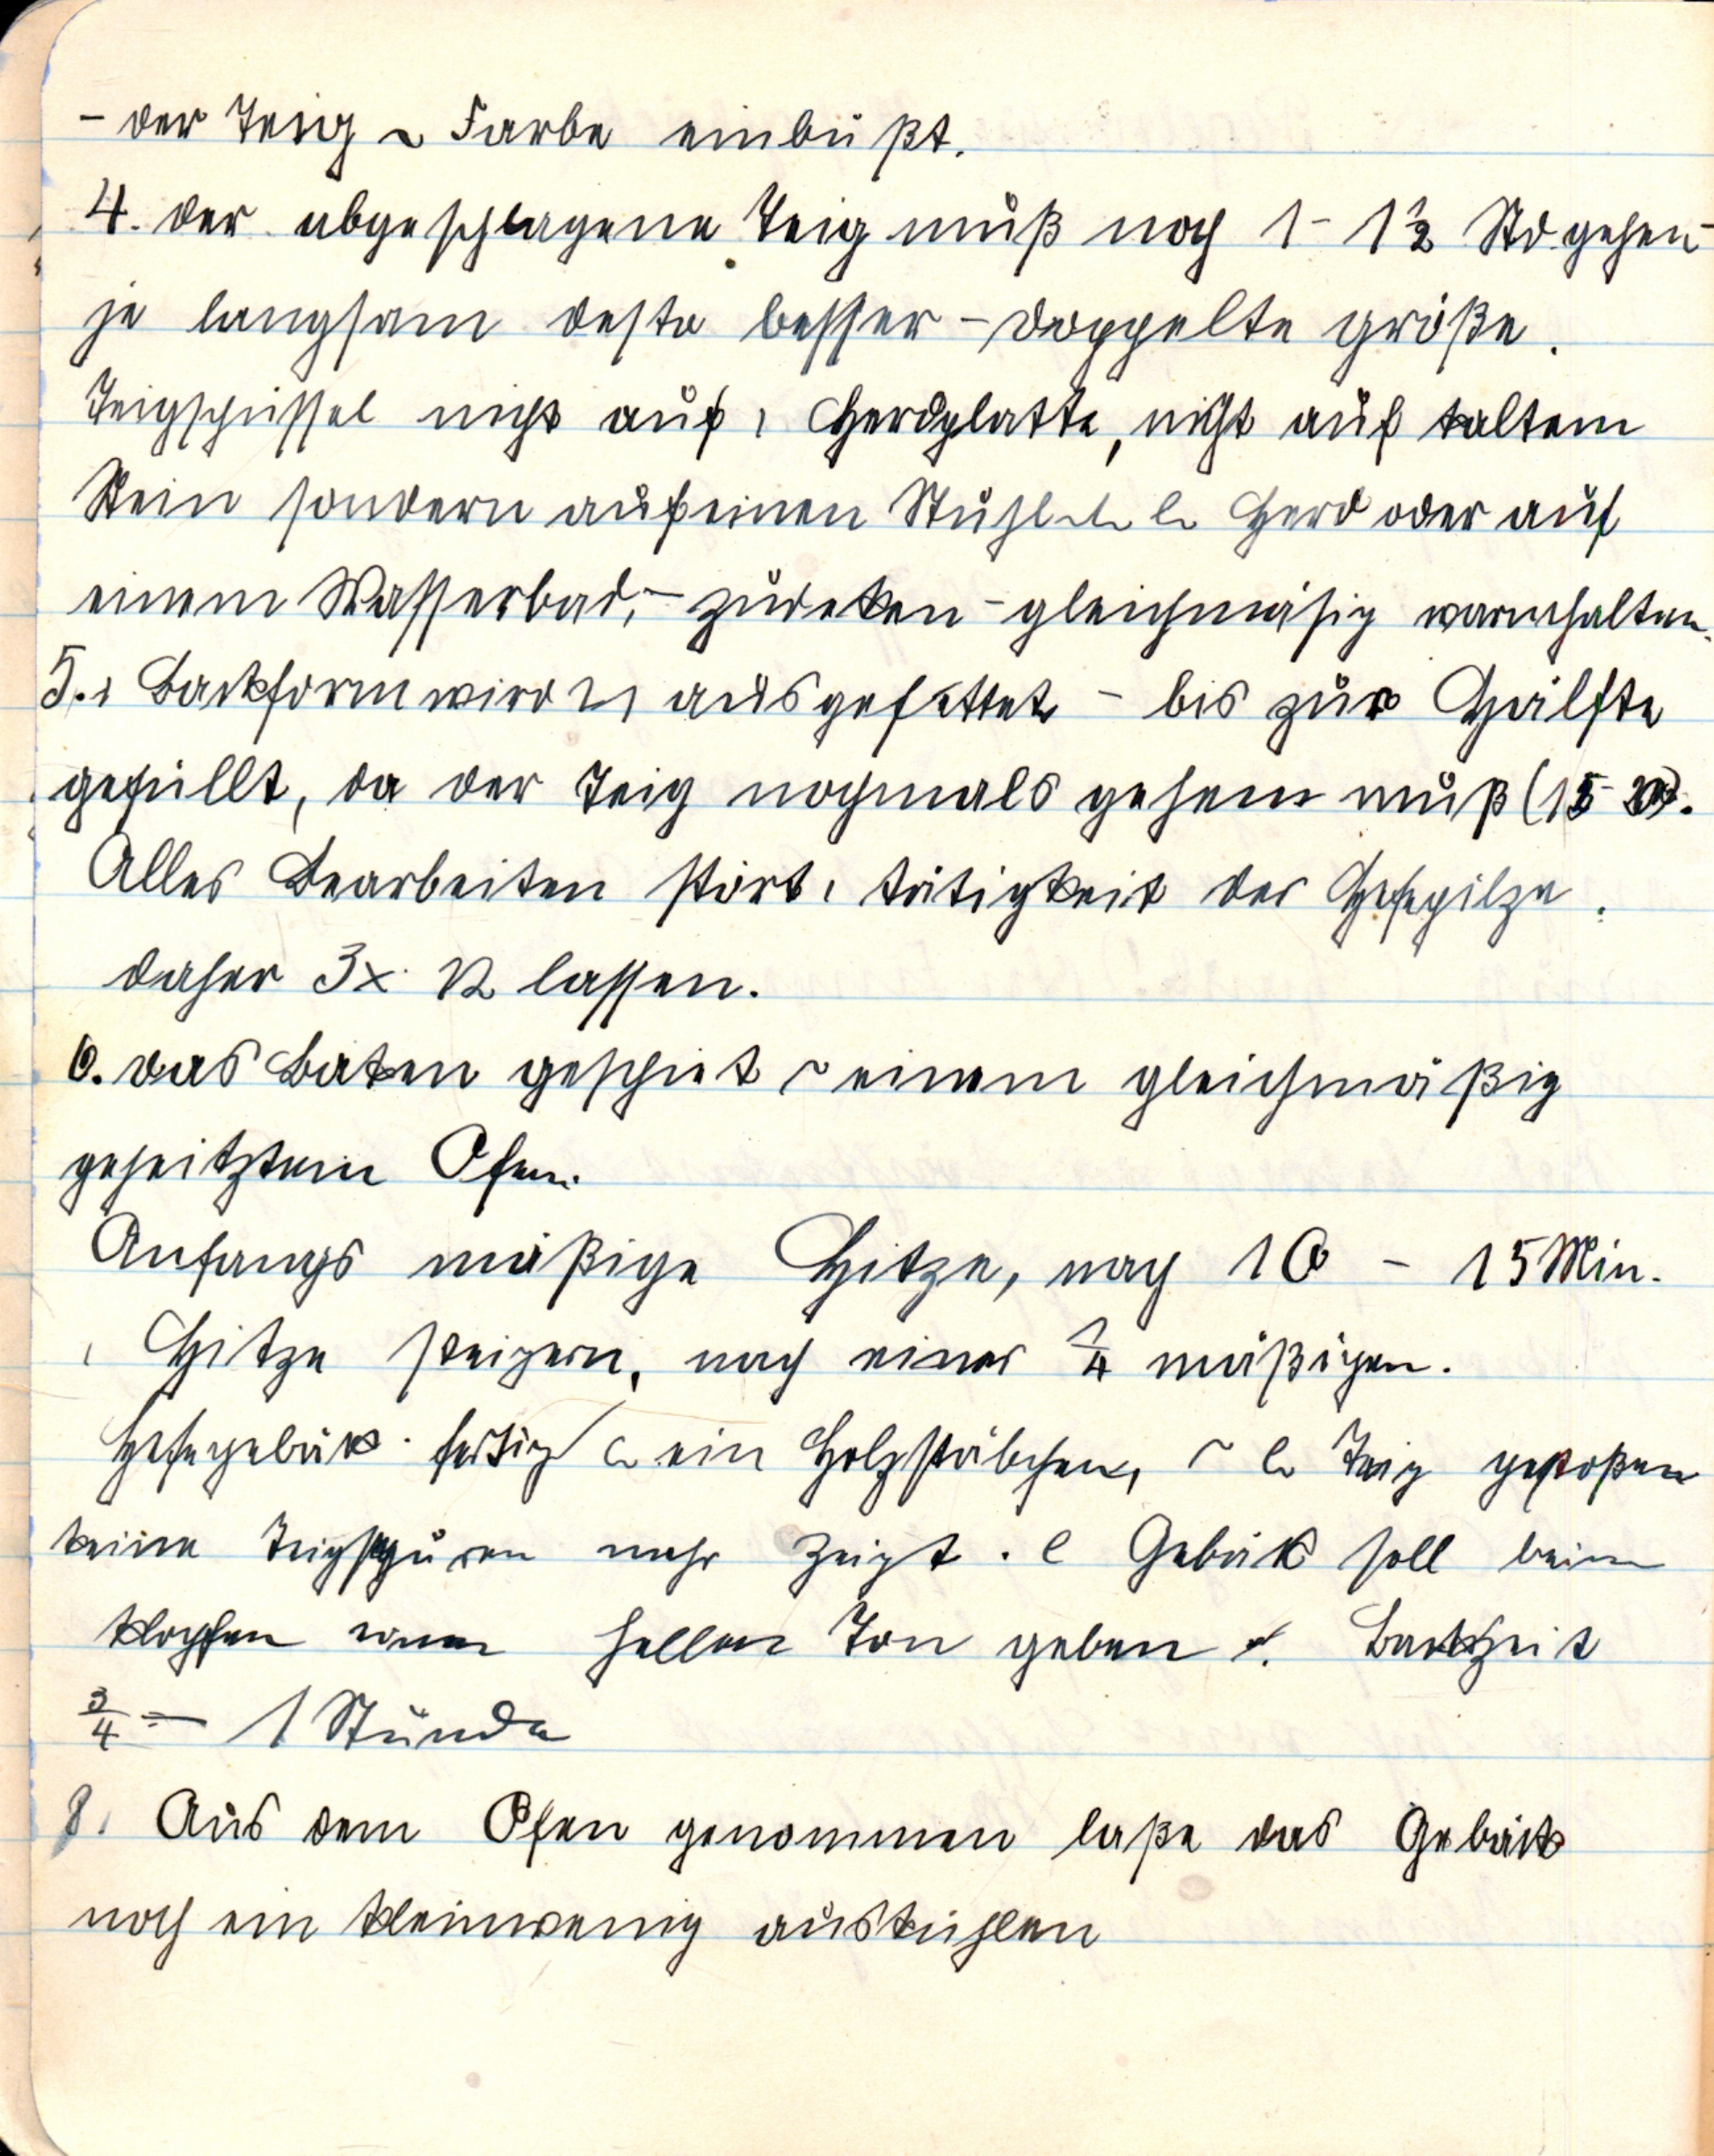 - der Teig Farbe einbüßt.
4. der abgeschlagene Teig muß noch 1- 1½ Std. gehen-
je langsam desto besser - doppelte größe.
Teigschüssel nicht auf Herdplatte, nicht auf kaltem
Stein sondern auf einen Stuhl Herd oder auf
einem Wasserbad, - zudeken - gleichmäsig warmhalten.
5. Backform wird ausgefettet - bis zur Hälfte
gefüllt, da der Teig nochmals gehen muß (15-20).
Alles Bearbeiten stört tätigkeit der Hefepilze.
daher 3x lassen.
6. das Baken geschiet einem gleichmäßig
geheitztem Ofen.
Anfangs mäßige Hitze, nach 10 - 15 Min.
Hitze steigern, nach einer ¼ mäßigen.
Hefegebäk fertig ein Holzstäbchen, Teig gestoßen
keine Teigspuren mehr zeigt. Gebäk soll beim
klopfen einen hellen Ton geben. Backzeit
¾ - 1 Stunde
8. Aus dem Ofen genommen laße das Gebäk
noch ein kleinwenig auskühlen